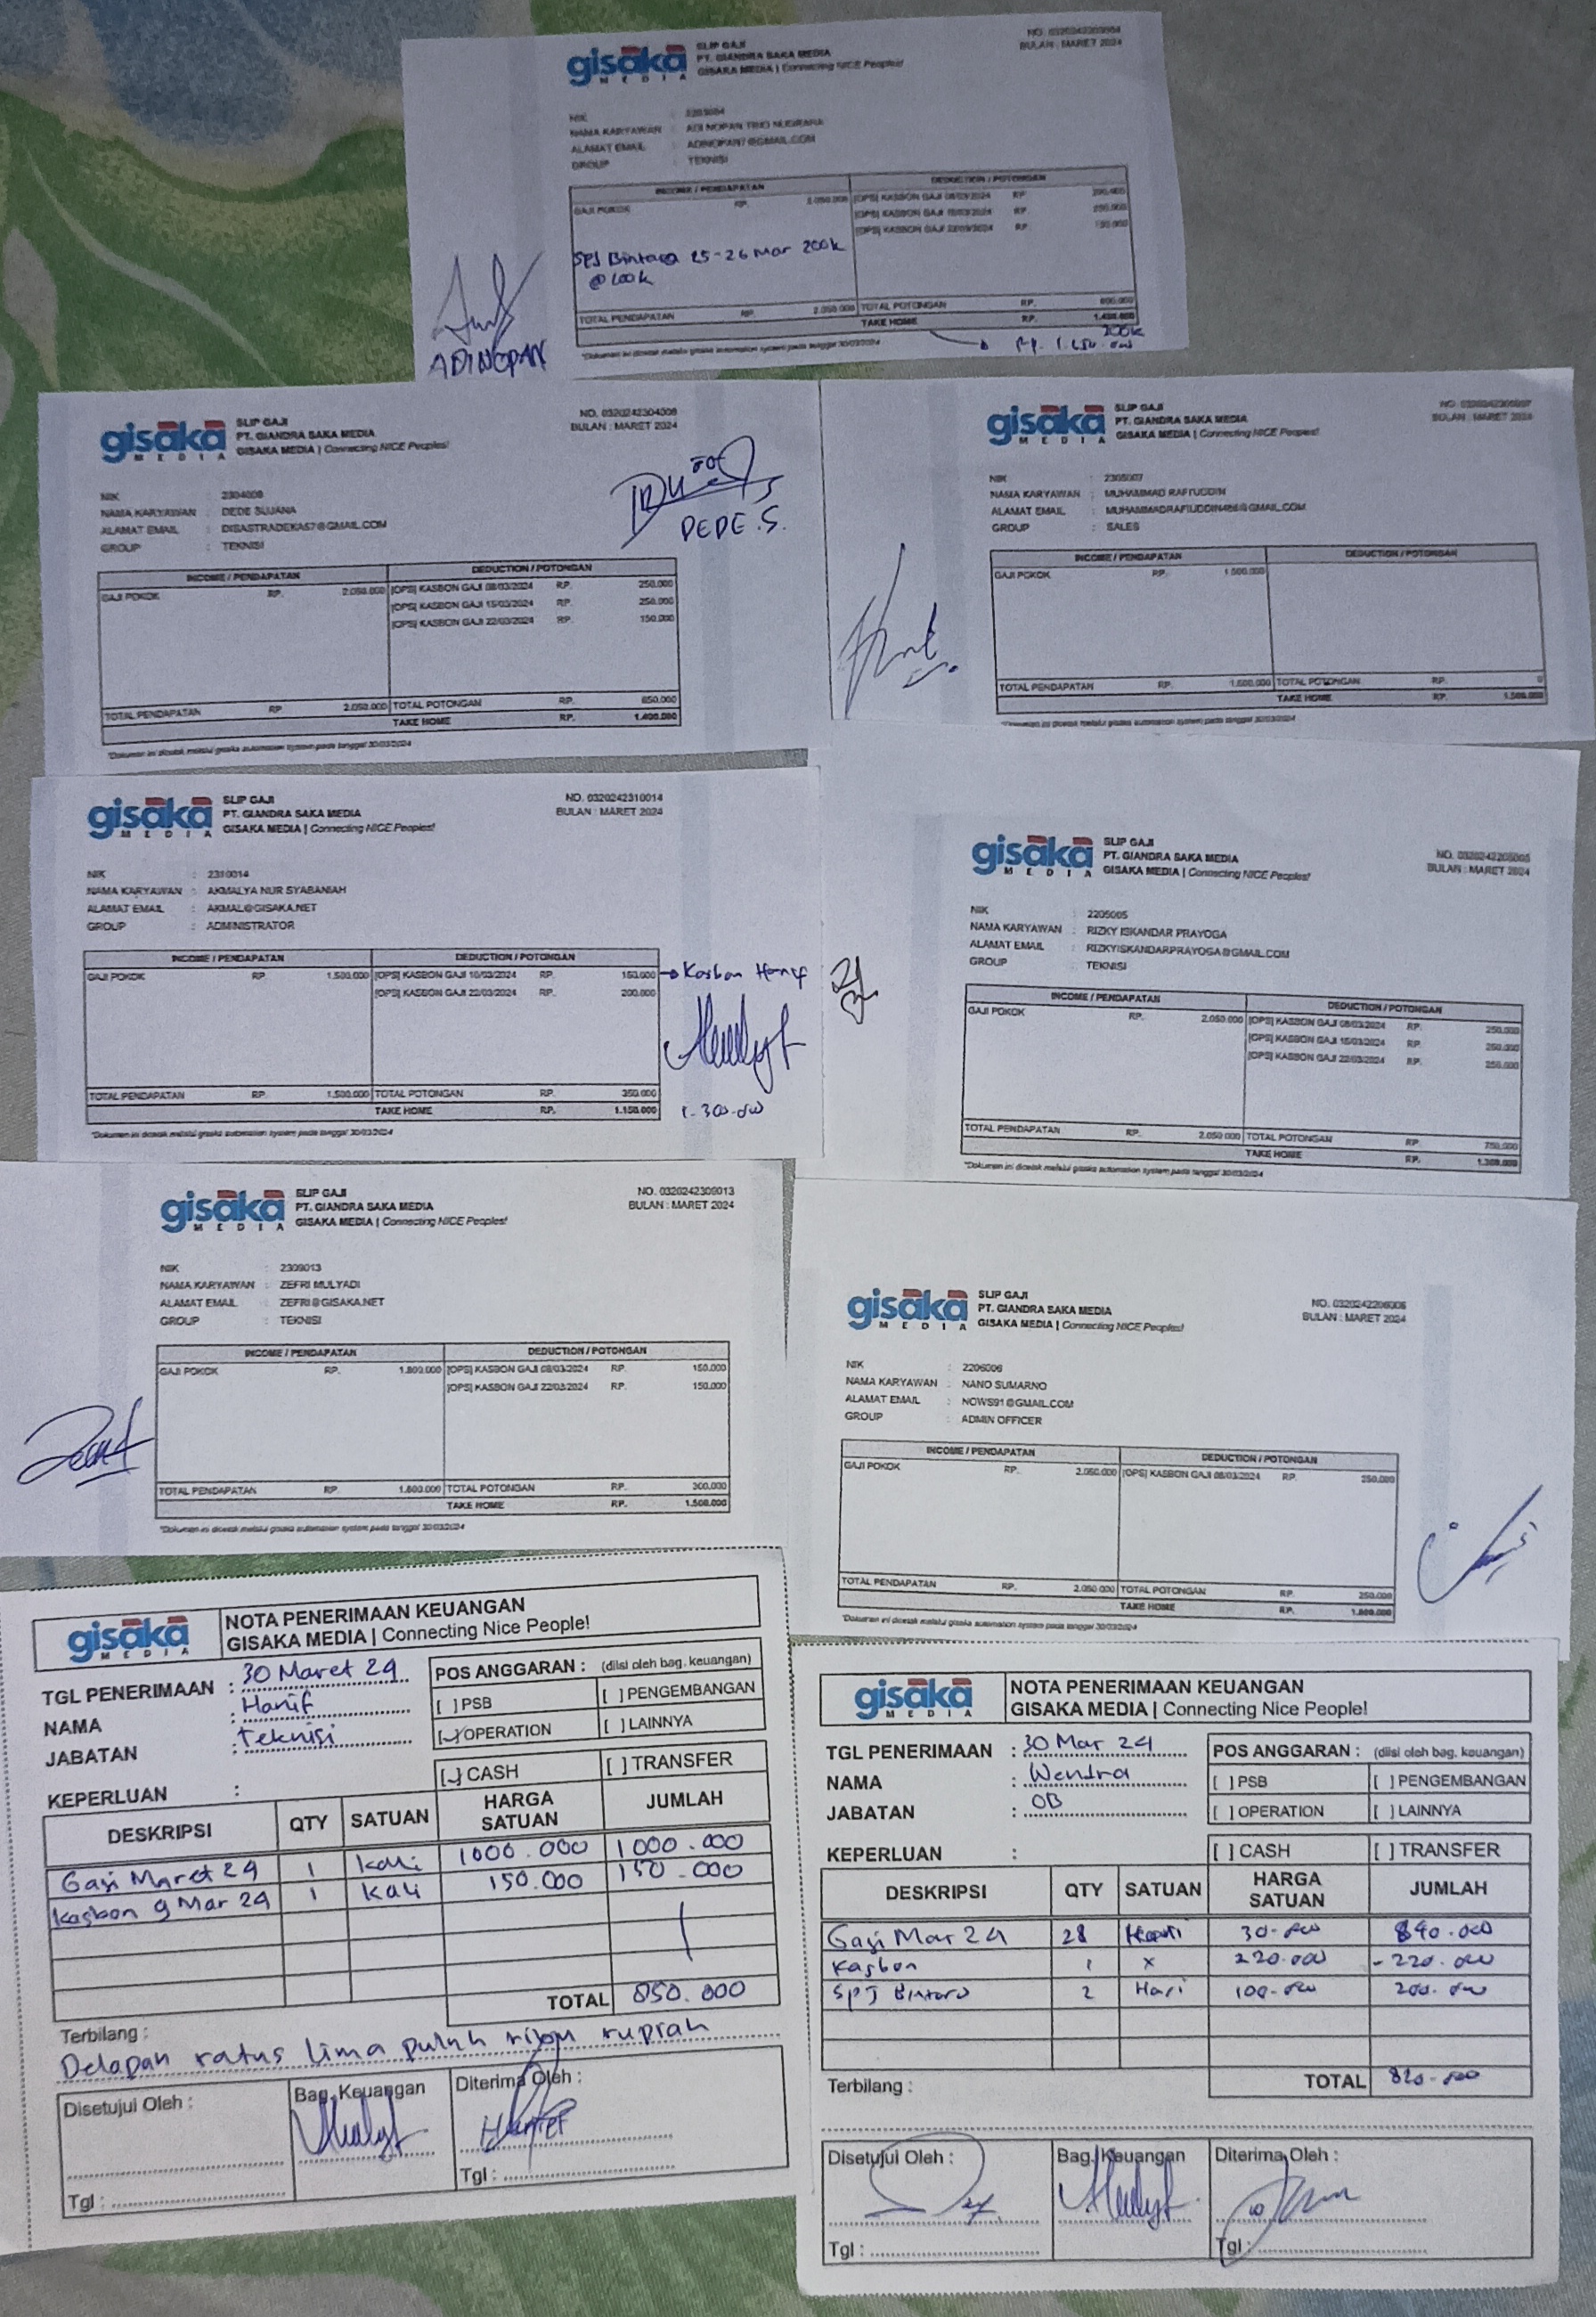 gisaka
MEDIA
SLIP GAJI
PT. GIANDRA SAKA MEDIA
GISAKA MEDIA | Connecting NICE Peoples!
BULAN : MARET 2024
NIK
NAMA KARYAWAN :
ALAMAT EMAIL : ADINOPAN7@GMAIL.COM
GROUP : TEKNISI
INCOME / PENDAPATAN DEDUCTION / POTONGAN
GAJI POKOK RP. 2.050.000 [OPS] KASBON GAJI 08/03/2024 RP
[OPS] KASBON GAJI RP.
[OPS] KASBON GAJI 22/03/2024 RP.
SPJ Bintara 25-26 Mar 200k
@ 100k
TOTAL PENDAPATAN RP. 2.050.000 TOTAL POTONGAN RP.
TAKE HOME RP.
200k
Rp. 1.650.000
*Dokumen ini dicetak melalui gisaka automation system pada tanggal 30/03/2024
ADINOPAN
gisaka
MEDIA
SLIP GAJI
PT. GIANDRA SAKA MEDIA
GISAKA MEDIA | Connecting NICE Peoples!
NO. 0320242304008
BULAN : MARET 2024
NIK : 2304008
NAMA KARYAWAN : DEDE SUJANA
ALAMAT EMAIL : DISASTRADEKA57@GMAIL.COM
GROUP : TEKNISI
DEDE.S.
INCOME / PENDAPATAN DEDUCTION / POTONGAN
GAJI POKOK RP. 2.050.000 [OPS] KASBON GAJI 08/03/2024 RP. 250.000
[OPS] KASBON GAJI 15/03/2024 RP. 250.000
[OPS] KASBON GAJI 22/03/2024 RP. 150.000
TOTAL PENDAPATAN RP 2.050.000 TOTAL POTONGAN RP. 650.000
TAKE HOME RP. 1.400.000
*Dokumen ini dicetak melalui gisaka automation system pada tanggal 30/03/2024
gisaka
MEDIA
SLIP GAJI
PT. GIANDRA SAKA MEDIA
GISAKA MEDIA | Connecting NICE Peoples!
BULAN : MARET 2024
NIK : 2305007
NAMA KARYAWAN : MUHAMMAD RAFIUDDIN
ALAMAT EMAIL :
GROUP : SALES
INCOME / PENDAPATAN DEDUCTION / POTONGAN
GAJI POKOK RP. 1.500.000
TOTAL PENDAPATAN RP. 1.500.000 TOTAL POTONGAN RP. 0
TAKE HOME RP. 1.500.000
*Dokumen ini dicetak melalui gisaka automation system pada tanggal 30/03/2024
gisaka
MEDIA
SLIP GAJI
PT. GIANDRA SAKA MEDIA
GISAKA MEDIA | Connecting NICE Peoples!
NO. 0320242310014
BULAN : MARET 2024
NIK : 2310014
NAMA KARYAWAN : AKMALYA NUR SYABANIAH
ALAMAT EMAIL : AKMAL@GISAKA.NET
GROUP : ADMINISTRATOR
INCOME / PENDAPATAN DEDUCTION / POTONGAN
GAJI POKOK RP. 1.500.000 [OPS] KASBON GAJI 10/03/2024 RP. 150.000 Kasbon Hanif
[OPS] KASBON GAJI 22/03/2024 RP. 200.000
TOTAL PENDAPATAN RP. 1.500.000 TOTAL POTONGAN RP. 350.000
TAKE HOME RP. 1.150.000 1.300.000
*Dokumen ini dicetak melalui gisaka automation system pada tanggal 30/03/2024
gisaka
MEDIA
SLIP GAJI
PT. GIANDRA SAKA MEDIA
GISAKA MEDIA | Connecting NICE Peoples!
NO. 0320242205005
BULAN : MARET 2024
NIK : 2205005
NAMA KARYAWAN : RIZKY ISKANDAR PRAYOGA
ALAMAT EMAIL : RIZKYISKANDARPRAYOGA@GMAIL.COM
GROUP : TEKNISI
INCOME / PENDAPATAN DEDUCTION / POTONGAN
GAJI POKOK RP. 2.050.000 [OPS] KASBON GAJI 08/03/2024 RP. 250.000
[OPS] KASBON GAJI 15/03/2024 RP. 250.000
[OPS] KASBON GAJI 22/03/2024 RP. 250.000
TOTAL PENDAPATAN RP. 2.050.000 TOTAL POTONGAN RP. 750.000
TAKE HOME RP. 1.300.000
*Dokumen ini dicetak melalui gisaka automation system pada tanggal 30/03/2024
gisaka
MEDIA
SLIP GAJI
PT. GIANDRA SAKA MEDIA
GISAKA MEDIA | Connecting NICE Peoples!
NO. 0320242309013
BULAN : MARET 2024
NIK : 2309013
NAMA KARYAWAN : ZEFRI MULYADI
ALAMAT EMAIL : ZEFRI@GISAKA.NET
GROUP : TEKNISI
INCOME / PENDAPATAN DEDUCTION / POTONGAN
GAJI POKOK RP. 1.800.000 [OPS] KASBON GAJI 08/03/2024 RP. 150.000
[OPS] KASBON GAJI 22/03/2024 RP. 150.000
TOTAL PENDAPATAN RP. 1.800.000 TOTAL POTONGAN RP. 300.000
TAKE HOME RP. 1.500.000
*Dokumen ini dicetak melalui gisaka automation system pada tanggal 30/03/2024
gisaka
MEDIA
SLIP GAJI
PT. GIANDRA SAKA MEDIA
GISAKA MEDIA | Connecting NICE Peoples!
NO. 0320242206006
BULAN : MARET 2024
NIK : 2206006
NAMA KARYAWAN : NANO SUMARNO
ALAMAT EMAIL : NOWS91@GMAIL.COM
GROUP : ADMIN OFFICER
INCOME / PENDAPATAN DEDUCTION / POTONGAN
GAJI POKOK RP. 2.050.000 [OPS] KASBON GAJI 08/03/2024 RP. 250.000
TOTAL PENDAPATAN RP. 2.050.000 TOTAL POTONGAN RP. 250.000
TAKE HOME RP. 1.800.000
*Dokumen ini dicetak melalui gisaka automation system pada tanggal 30/03/2024
gisaka
MEDIA
NOTA PENERIMAAN KEUANGAN
GISAKA MEDIA | Connecting Nice People!
TGL PENERIMAAN : 30 Maret 24
NAMA : Hanif
JABATAN : Teknisi
POS ANGGARAN : (diisi oleh bag. keuangan)
[ ] PSB [ ] PENGEMBANGAN
[✓] OPERATION [ ] LAINNYA
KEPERLUAN : [✓] CASH [ ] TRANSFER
DESKRIPSI QTY SATUAN HARGA SATUAN JUMLAH
Gaji Maret 24 1 kali 1000.000 1000.000
Kasbon 9 Mar 24 1 kali 150.000 150.000
TOTAL 850.000
Terbilang :
Delapan ratus lima puluh ribu rupiah
Disetujui Oleh : Bag. Keuangan Diterima Oleh :
Hanif
Tgl : Tgl :
gisaka
MEDIA
NOTA PENERIMAAN KEUANGAN
GISAKA MEDIA | Connecting Nice People!
TGL PENERIMAAN : 30 Mar 24
NAMA : Wendra
JABATAN : OB
POS ANGGARAN : (diisi oleh bag. keuangan)
[ ] PSB [ ] PENGEMBANGAN
[ ] OPERATION [ ] LAINNYA
KEPERLUAN : [ ] CASH [ ] TRANSFER
DESKRIPSI QTY SATUAN HARGA SATUAN JUMLAH
Gaji Mar 24 28 Hari 30.000 840.000
Kasbon 1 x 220.000 - 220.000
SPJ Bintara 2 Hari 100.000 200.000
TOTAL 820.000
Terbilang :
Disetujui Oleh : Bag. Keuangan Diterima Oleh :
Tgl : Tgl :